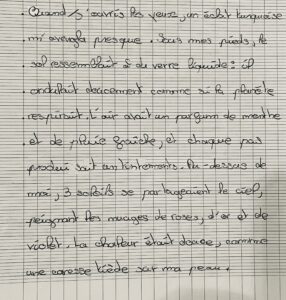 . Quand j'ouvris les yeux, un éclat turquoise
m'aveugla presque. Sous mes pieds, le
sol ressemblait à du verre liquide : il
ondulait doucement comme si la planète
respirait. L'air avait un parfum de menthe
et de pluie fraîche, et chaque pas
produisait un tintements. Au-dessus de
moi, 3 soleils se partageaient le ciel,
peignant les nuages de roses, d'or et de
violet. La chaleur était douce, comme
une caresse tiède sur ma peau.